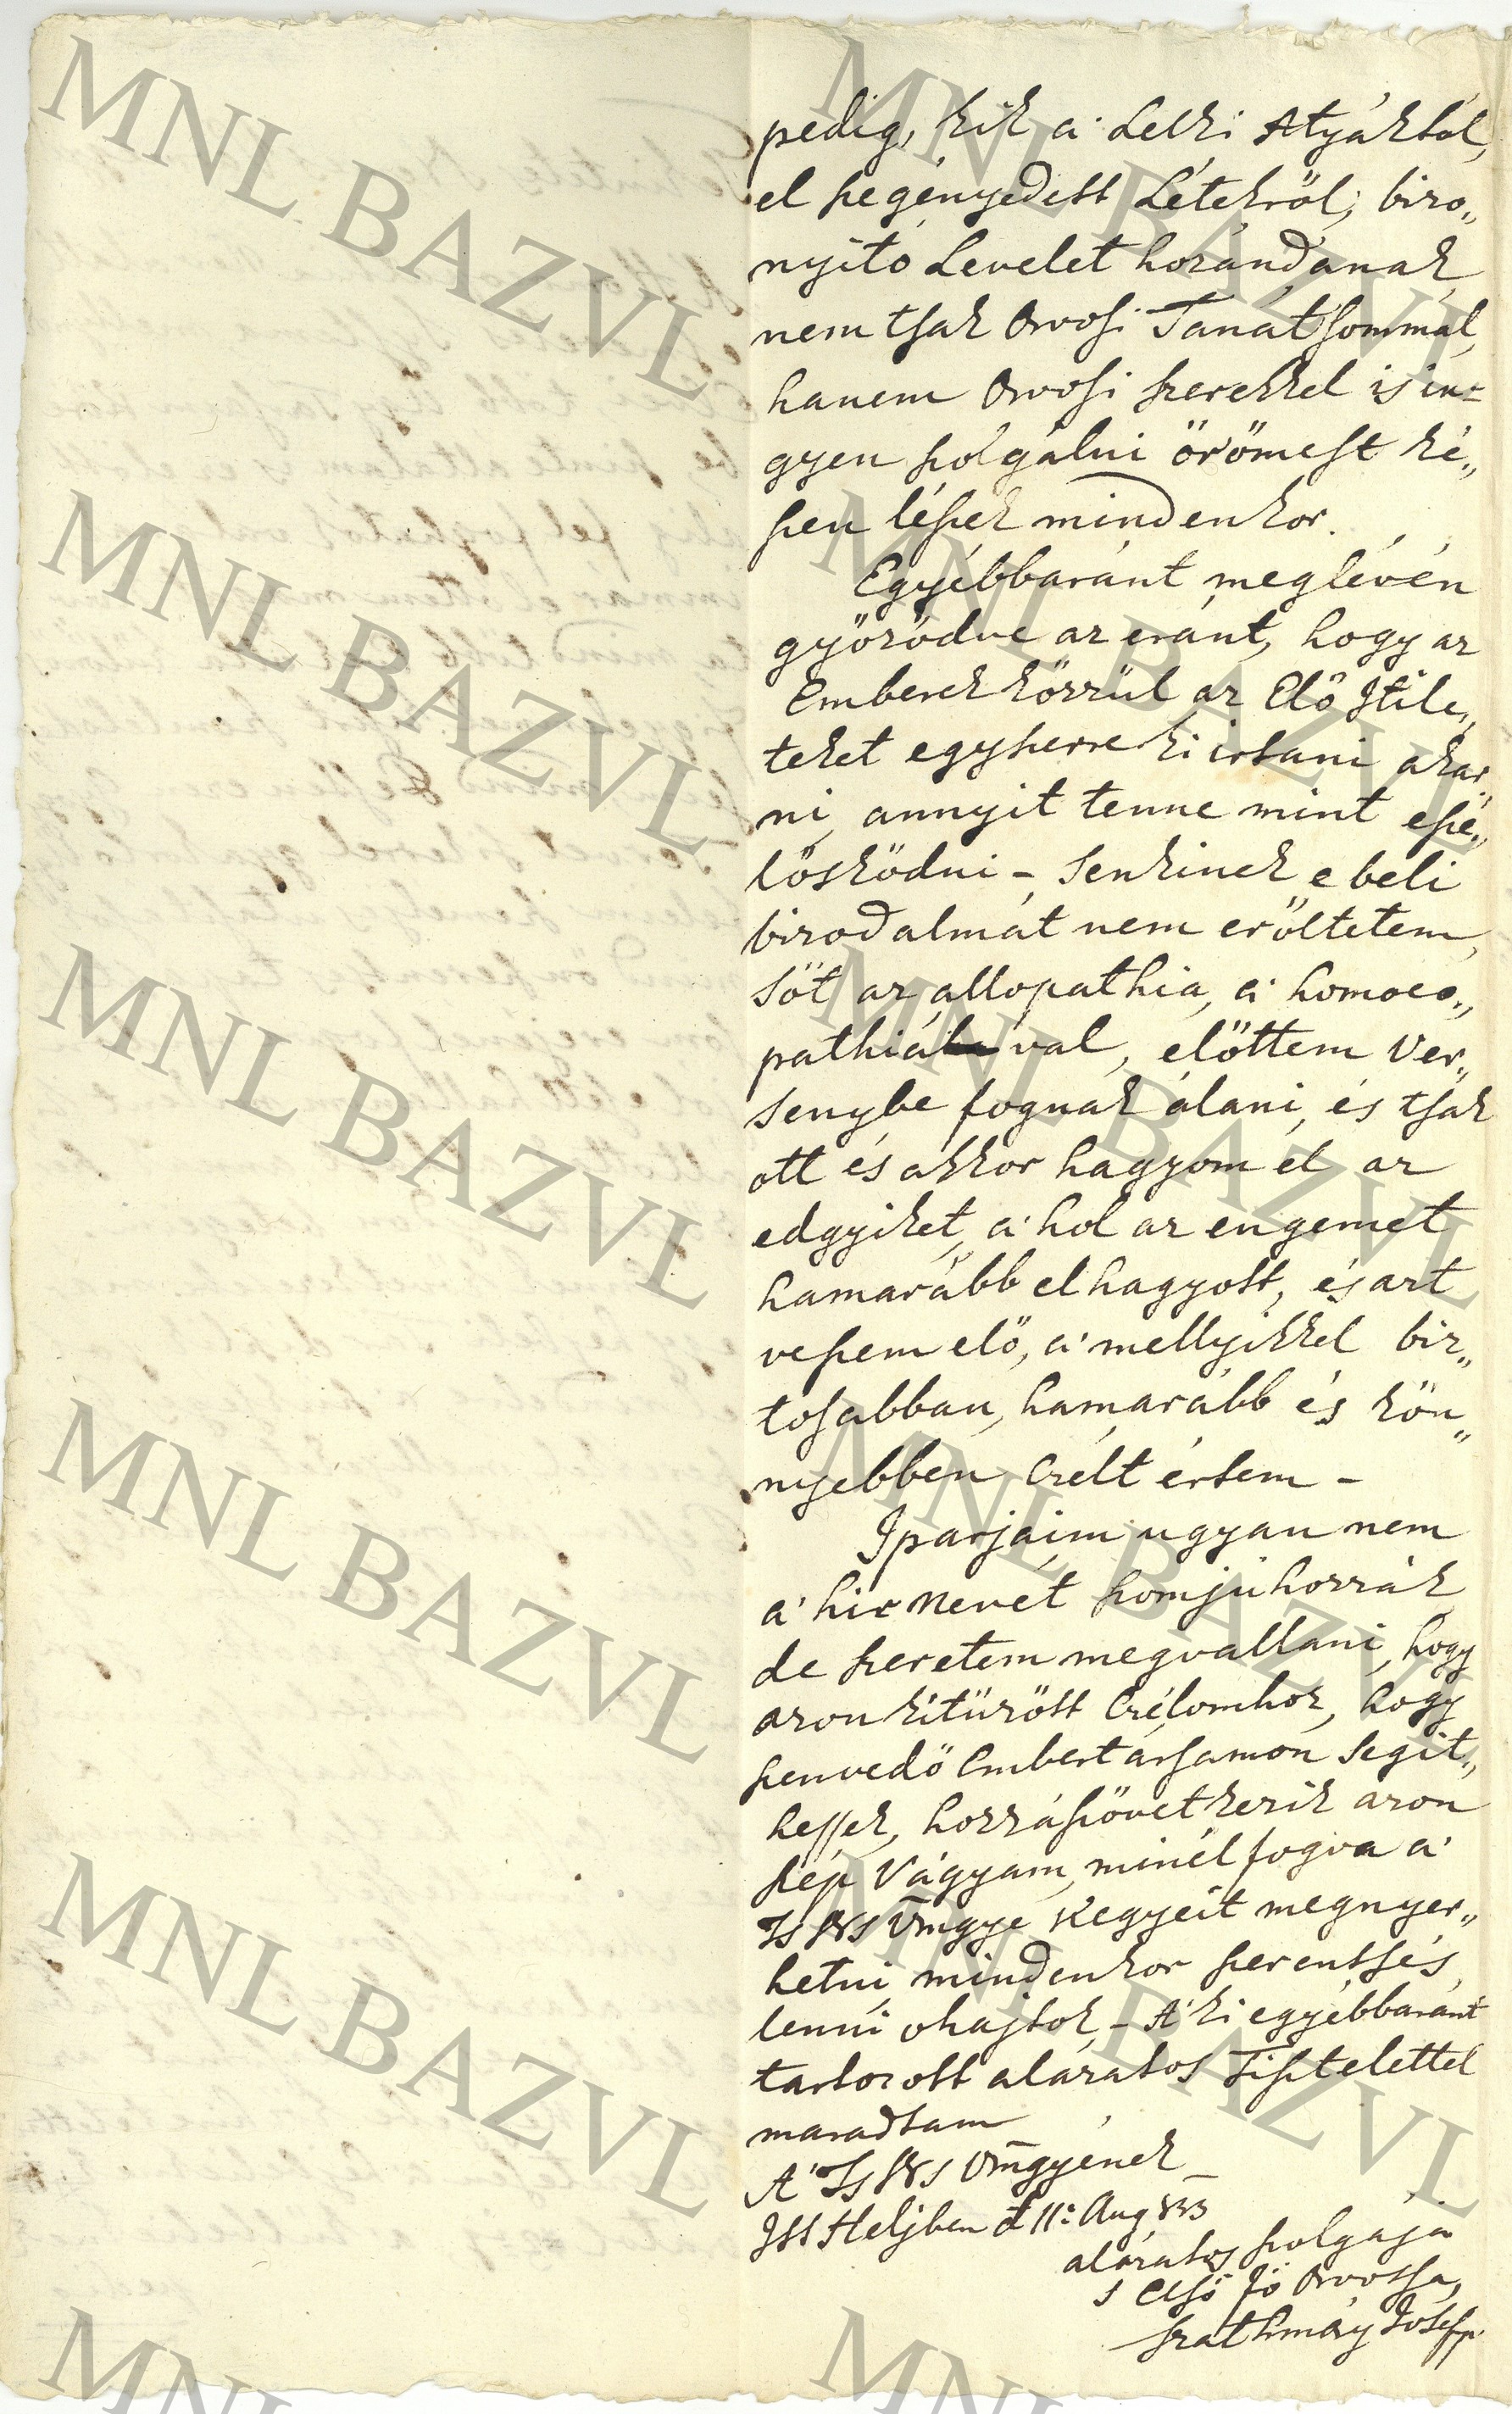 pedig, kik a' Lelki Atyáktól,
el szegényedett Létekről, bizo„
nyitó Levelet hozándanak,
nem tsak Orvosi Tanátsommal,
hanem Orvosi szerekkel is in=
gyen szolgálni örömest ké„
szen lészek mindenkor.
Egyébbaránt meglévén
győződve az eránt, hogy az
Emberek közzül az Elő Itile„
teket egyszerre ki irtani akar„
ni, annyit tenne mint esze„
lősködni – Senkinek e beli
birodalmát nem erőltetem,
sőt az allopathia, a' homoeo„
pathiával, előttem Ver„
senybe fognak álani, és tsak
ott és akkor hagyom el az
edgyiket, a' hol az engemet
hamarább el hagyott, és azt
veszem elő, a' mellyikkel biz„
tosabban, hamarább és kön„
nyebben Czélt értem –
Iparjaim ugyan nem
a' hir nevét szomjuhozzák
de szeretem megvallani, hogy
azon kitüzött Czélomhoz, hogy
szenvedő Embertársamon Segit„
hessek, hozzászövetkezik azon
szép Vágyam, minél fogva a'
Ts Ns Vmgye Kegyeit megnyer„
hetni mindenkor szerentsés
lenni ohajtok, – A' ki egyébbaránt
tartozott alázatos Tisztelettel
maradtam
A' Ts Ns Vmgyének
Itt Heljben d 11: Aug 833
alázatos szolgája
s Első fő Orvossa,
Szathmáry Josef
MNL BAZVL